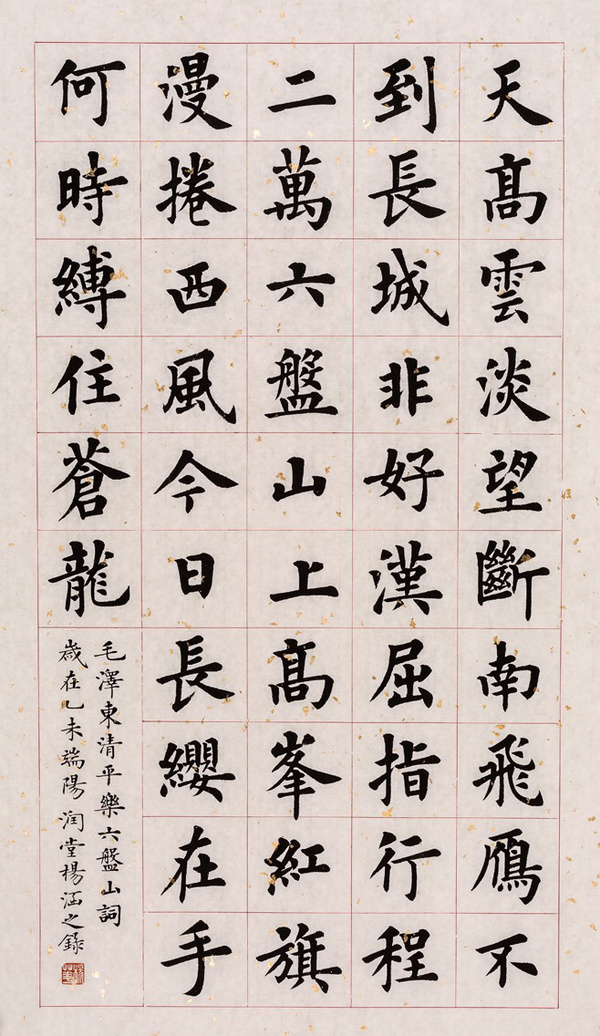 天高雲淡望斷南飛鴈不
到長城非好漢屈指行程
二萬六盤山上高峯紅旗
漫捲西風今日長纓在手
何時縛住蒼龍
毛澤東清平樂六盤山詞
歲在乙未端陽潤堂楊涵之錄